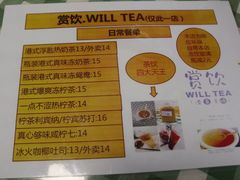 赏饮.WILL TEA(仅此一店)
日常餐单
港式浮匙热奶茶:13/外卖14
瓶装港式真味冻奶茶:15
瓶装港式真味冻鸳鸯:15
港式爆爽冻柠茶:15
一点不涩热柠茶:14
柠茶利宾纳/柠宾苏打:16
真心够味咸柠七:14
冰火咖椰吐司:13/外卖:14
茶饮
四大天王
赏饮
WILL TEA